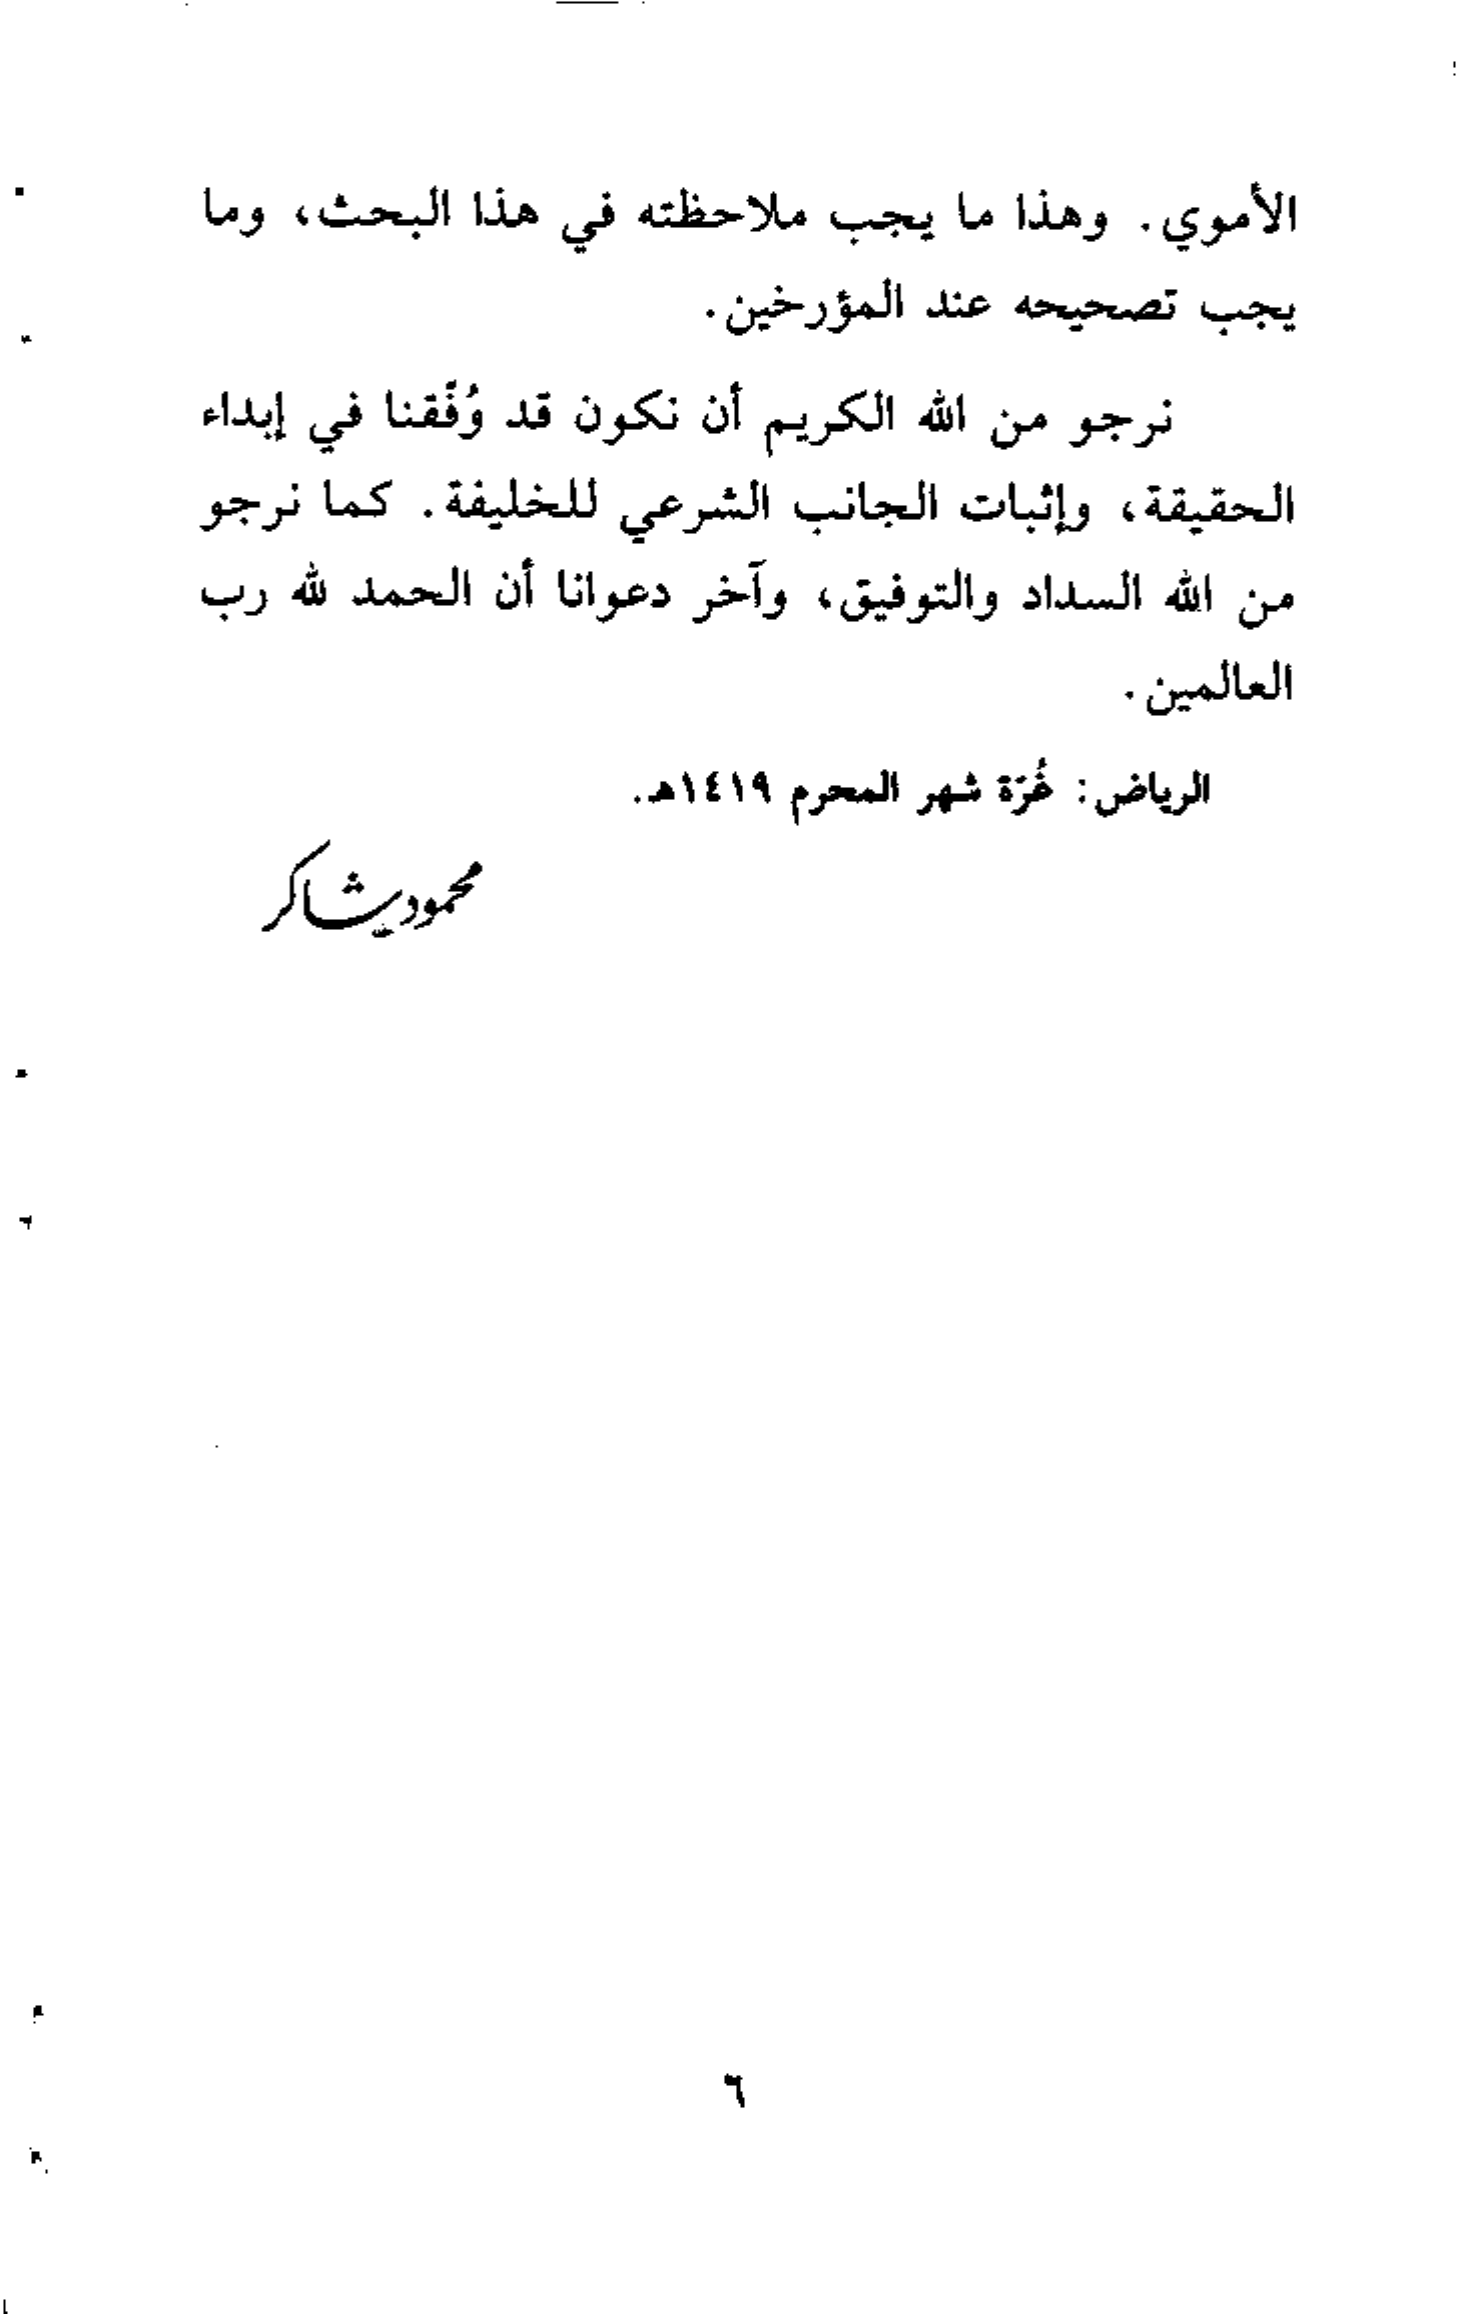 الأموي. وهذا ما يجب ملاحظته في هذا البحث، وما
يجب تصحيحه عند المؤرخين.
نرجو من الله الكريم أن نكون قد وُفّقنا في إبداء
الحقيقة، وإثبات الجانب الشرعي للخليفة. كما نرجو
من الله السداد والتوفيق، وآخر دعوانا أن الحمد لله رب
العالمين.
الرياض: غُرّة شهر المحرم ١٤١٩هـ.
محمود شاكر
٦